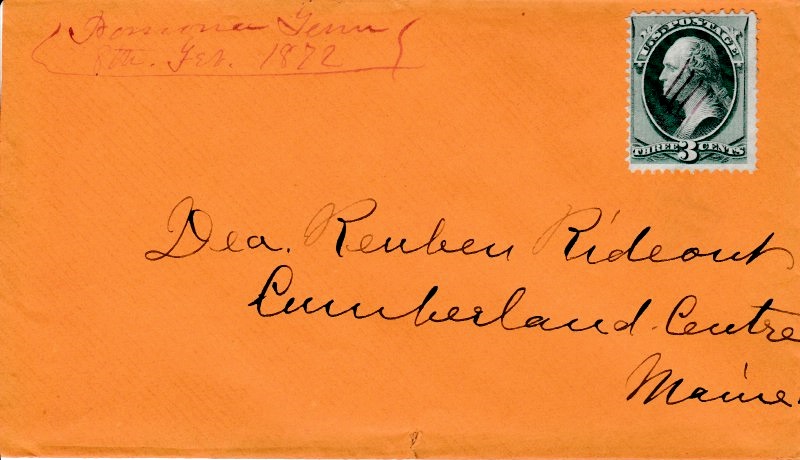 Pomona Tenn
8th. Feb. 1872
U.S. POSTAGE
THREE 3 CENTS
Dea. Reuben Rideout
Cumberland Centre
Maine